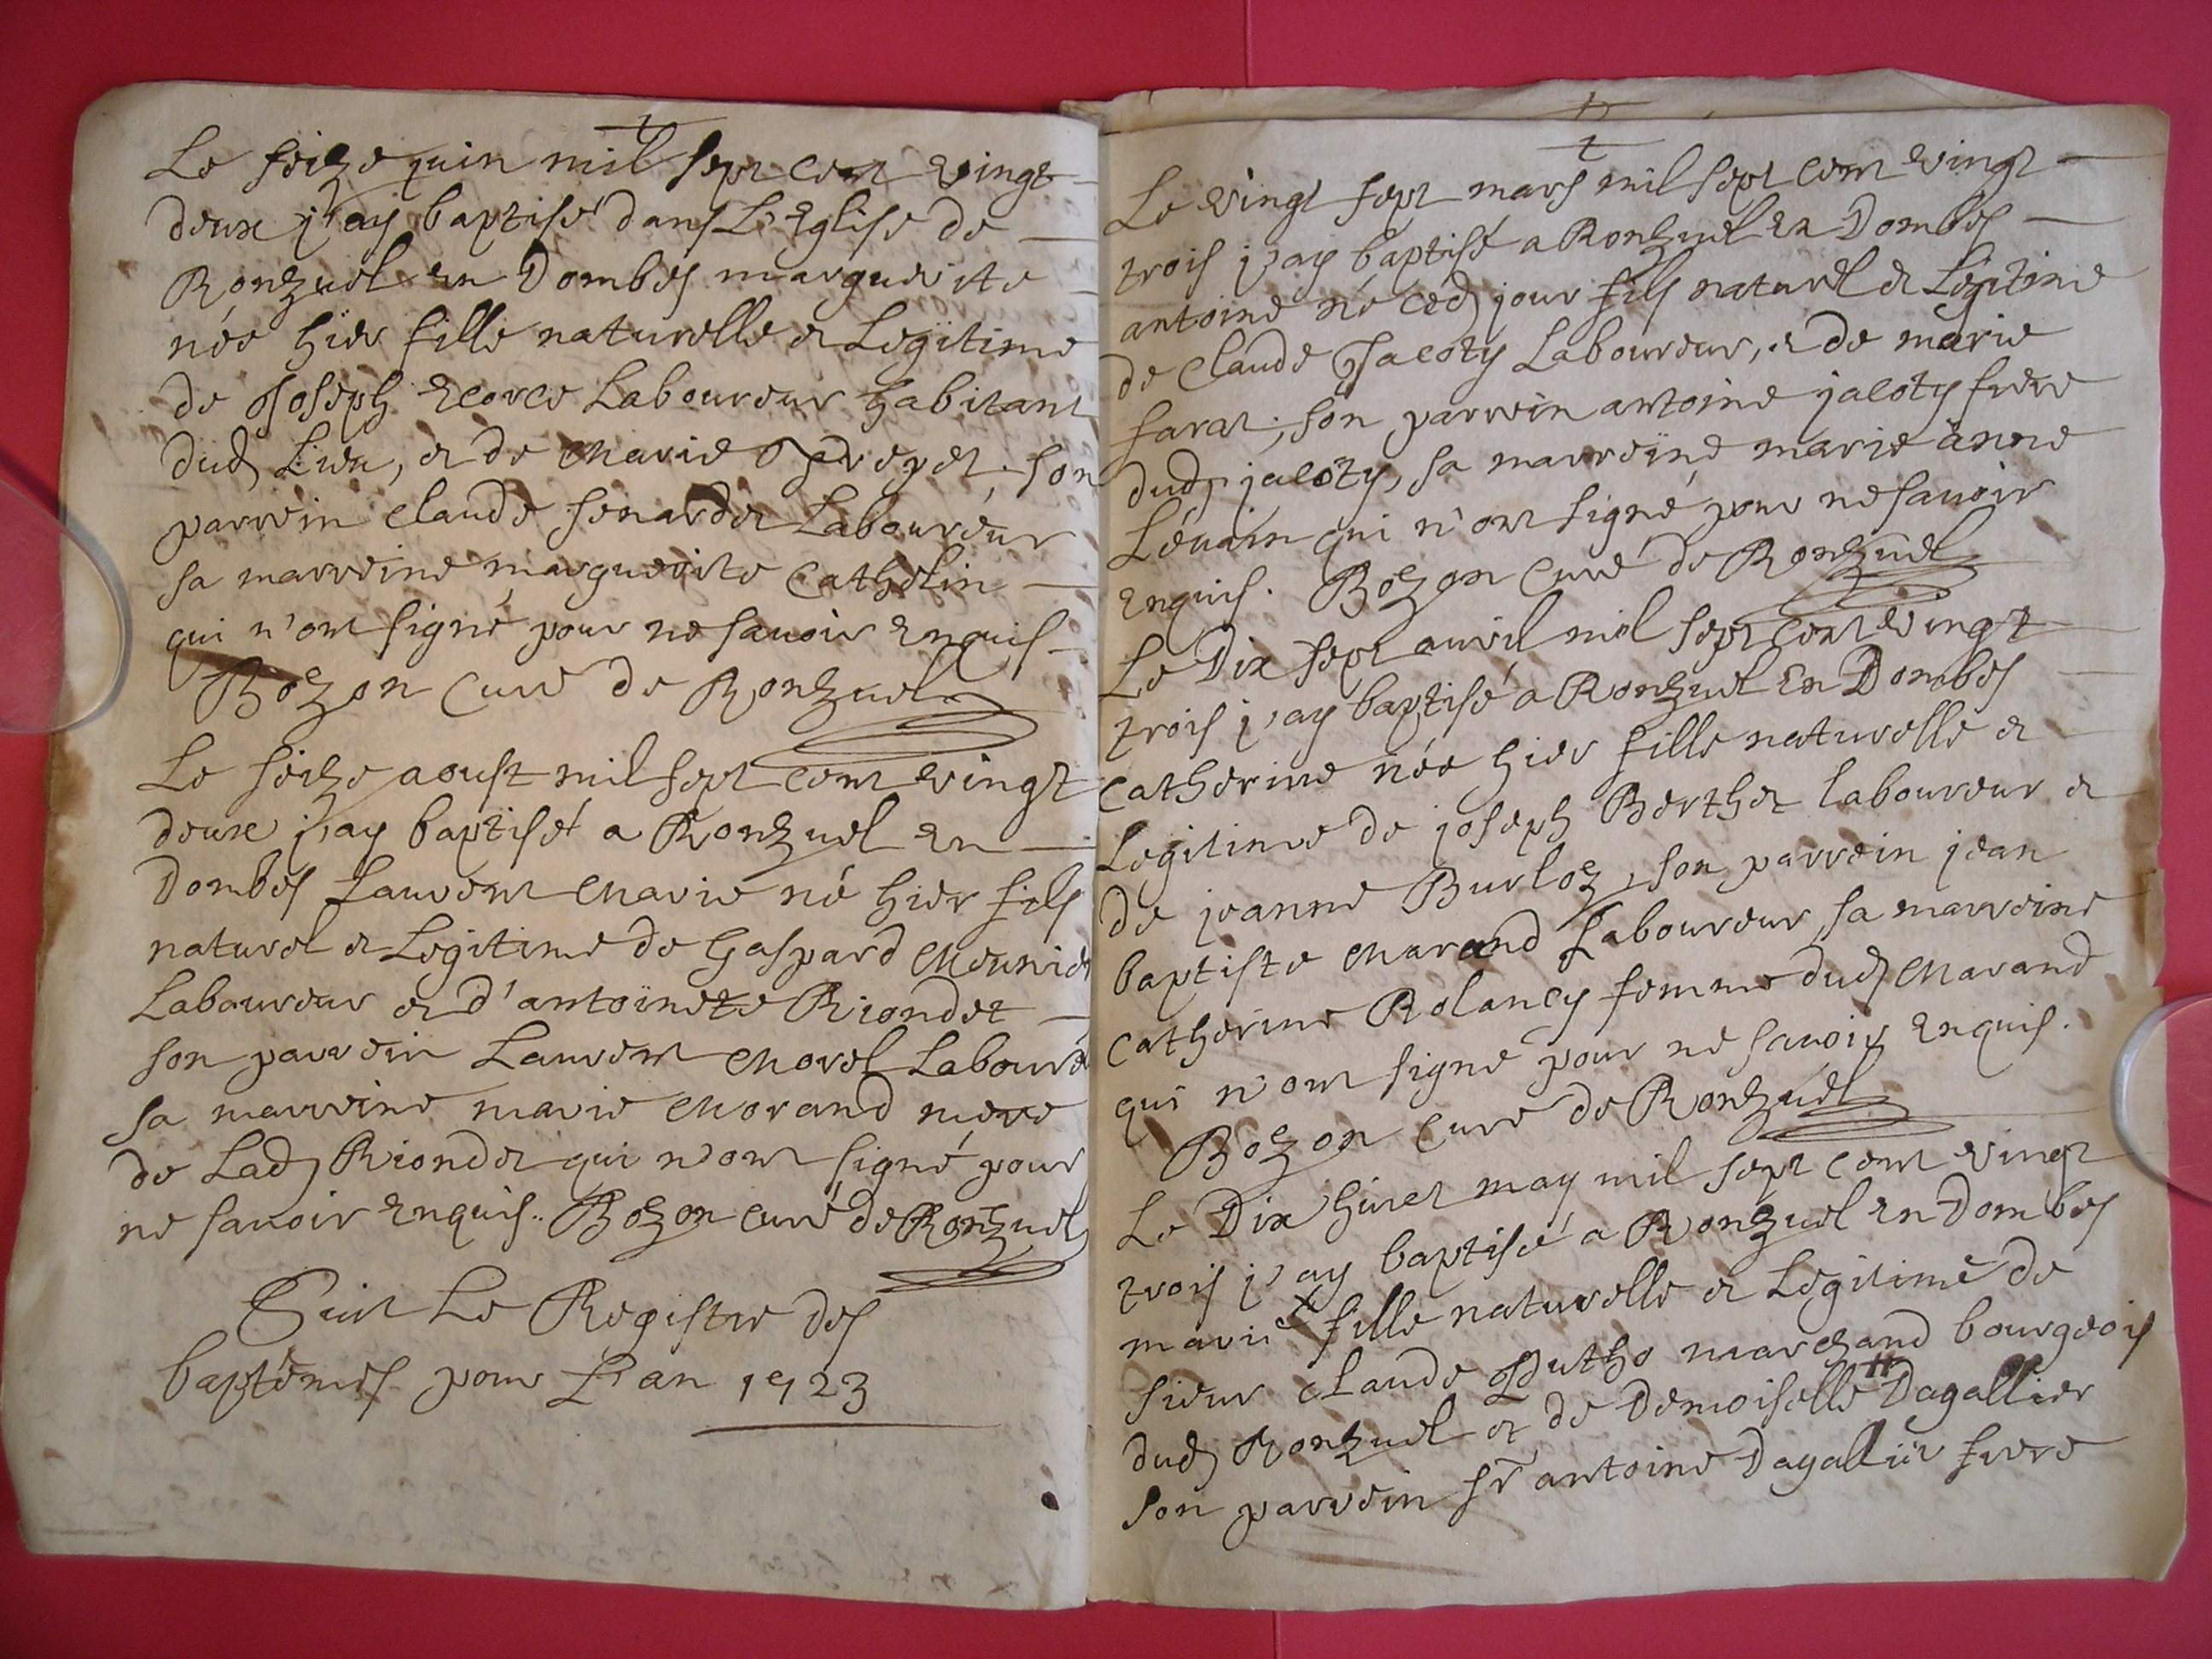 Le seize juin mil sept cent vingt
deux j'ay baptisé dans L'Eglise de
Ronzuel en Dombes marguerite
née hier fille naturelle et Legitime
de Joseph Ecorce Laboureur habitant
dud Lieu, et de Marie son
parrein claude Laboureur
sa marreine marguerite Cathelin
qui n'ont signé pour ne savoir Enquis
Bozon Curé de Ronzuel
Le seize aoust mil sept cent vingt
deux j'ay baptisé a Ronzuel en
Dombes Laurent Marie né hier fils
naturel et Legitime de Gaspard Meunier
Laboureur et d'antoinete Riondet
son parrein Laurent Morel Laboure
sa marreine marie Morand mere
de Lad Riondet qui n'ont signé pour
ne savoir Enquis.. Bozon curé de Ronzuel
Suit Le Registre des
baptêmes pour L'an 1723
Le vingt sept mars mil sept cent vingt
trois j'ay baptisé a Ronzuel En Dombes
antoine né ced jour fils naturel et Legitime
de Claude Jacoty Laboureur, et de marie
farat, son parrein antoine jacoty frere
dud jacoty, sa marreine marie anne
qui n'ont signé pour ne savoir
Enquis. Bozon Curé de Ronzuel
Le Dix sept avril mil sept cent vingt
trois j'ay baptisé a Ronzuel En Dombes
catherine née hier fille naturelle et
Legitime de joseph Berthet laboureur et
de jeanne Burloz, son parrein jean
baptiste Marand Laboureur, sa marreine
catherine Rolancy femme dud Marand
qui n'ont signé pour ne savoir Enquis.
Bozon Curé de Ronzuel
Le Dix huict may mil sept cent vingt
trois j'ay baptisé a Ronzuel En Dombes
marie fille naturelle et Legitime de
sieur Claude Dutho marchand bourgeois
dud Ronzuel et de Demoiselle Dagallier
son parrein sr antoine Dagallier frere